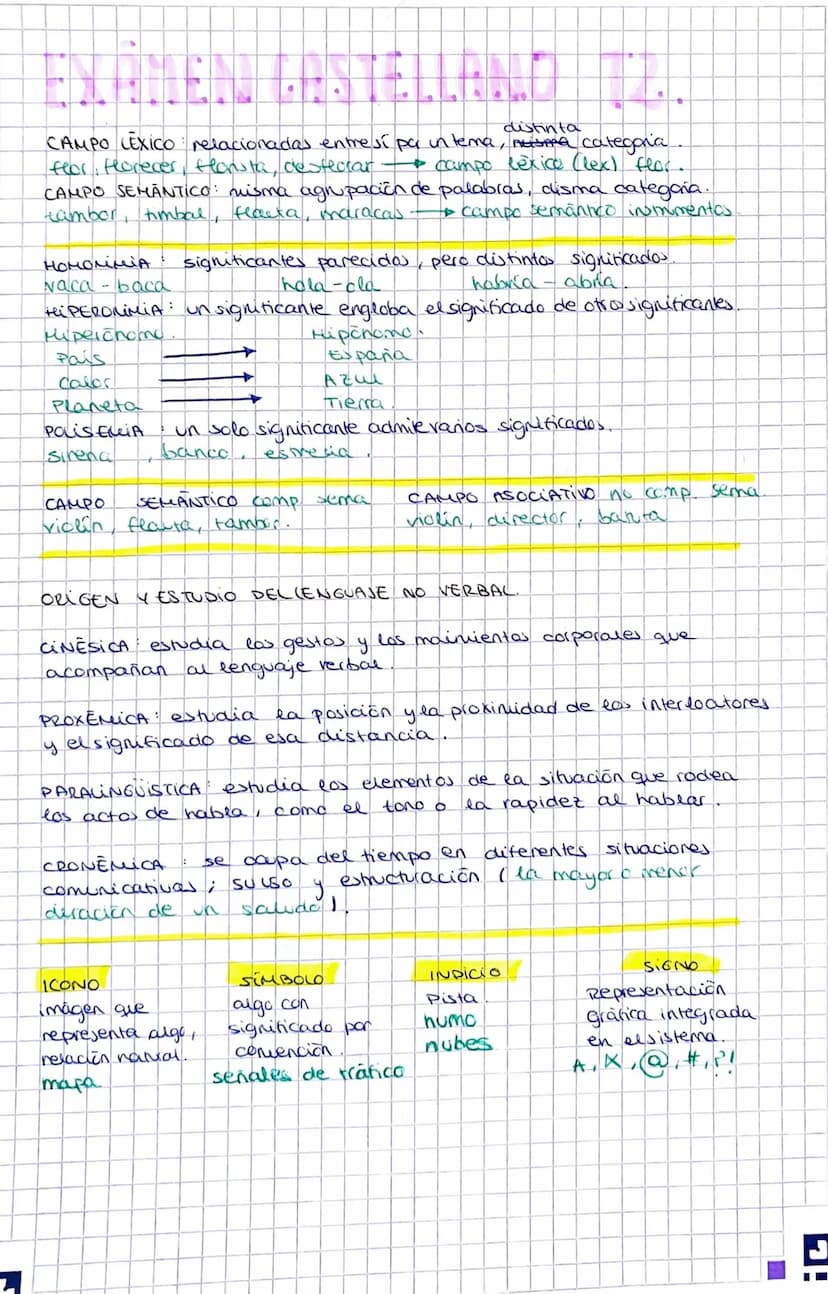 EXÁMEN CASTELLANO T2.
distinta
CAMPO LÉXICO: relacionadas entre sí por un tema, misma categoria.
flor, florecer, florista, desflorar → campo léxico (lex) flor.
CAMPO SEMÁNTICO: misma agrupación de palabras, misma categoria.
tambor, timbal, flauta, maracas → campo semántico instrumentos
HOMONIMIA: significantes parecidos, pero distintos significados.
vaca - baca hola - ola habría - abría.
HIPERONIMIA: un significante engloba el significado de otros significantes.
Hiperónomo. Hipónomo.
País → España
Color → Azul
Planeta → Tierra.
POLISEMIA: un solo significante admie varios significados.
sirena, banco, estrella.
CAMPO SEMÁNTICO comp sema CAMPO ASOCIATIVO no comp. sema
violín, flauta, tambor. violín, director, batuta
ORIGEN Y ESTUDIO DEL LENGUAJE NO VERBAL.
CINÉSICA: estudia los gestos y los movimientos corporales que
acompañan al lenguaje verbal.
PROXÉMICA: estudia la posición y la proximidad de los interlocutores
y el significado de esa distancia.
PARALINGÜÍSTICA: estudia los elementos de la situación que rodea
los actos de habla, como el tono o la rapidez al hablar.
CRONÉMICA: se ocupa del tiempo en diferentes situaciones
comunicativas; su uso y estructuración (la mayor o menor
duración de un saludo).
ICONO SÍMBOLO INDICIO SIGNO
imágen que algo con Pista. Representación
representa algo, significado por humo gráfica integrada
relación natural. convención. nubes en el sistema.
mapa señales de tráfico A, X, @, #, ?!